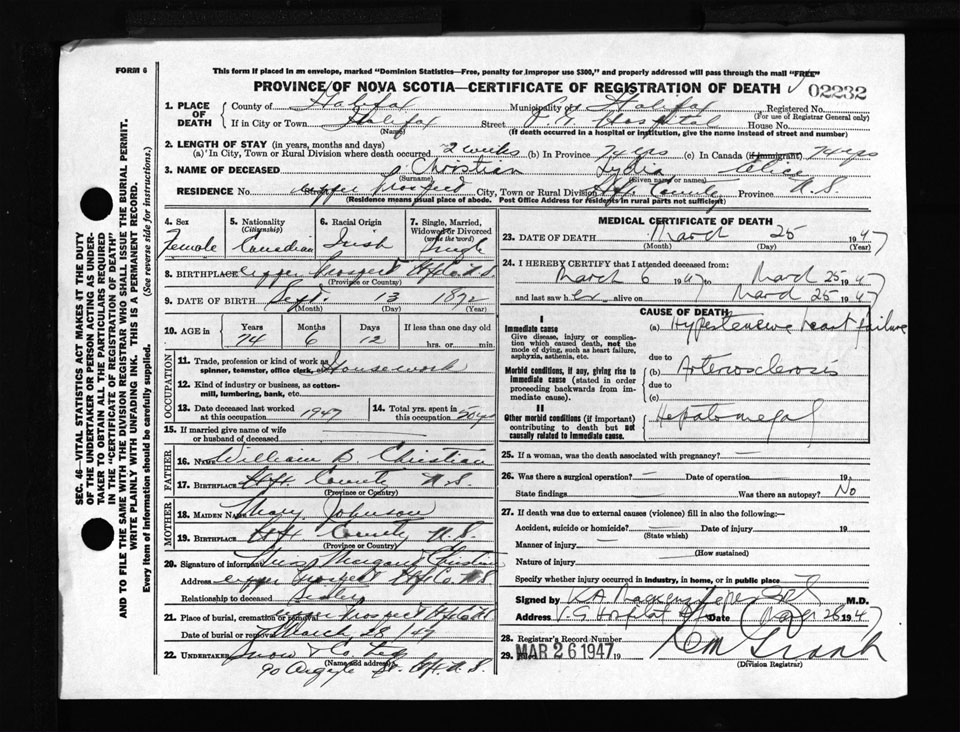 FORM 6
This form if placed in an envelope, marked "Dominion Statistics—Free, penalty for improper use $300," and properly addressed will pass through the mail "FREE"
PROVINCE OF NOVA SCOTIA—CERTIFICATE OF REGISTRATION OF DEATH 02232
1. PLACE OF DEATH County of Halifax Municipality of Halifax Registered No. (For use of Registrar General only)
If in City or Town Halifax (Name) Street V. G. Hospital House No.
(If death occurred in a hospital or institution, give the name instead of street and number)
2. LENGTH OF STAY (in years, months and days)
(a) In City, Town or Rural Division where death occurred 2 weeks (b) In Province 74 yrs (c) In Canada (if immigrant) 74 yrs
3. NAME OF DECEASED Christian (Surname) Lydia Alice (Given name or names)
RESIDENCE No. Upper Prospect Street City, Town or Rural Division Hfx County Province N.S.
(Residence means usual place of abode. Post Office Address for residents in rural parts not sufficient)
4. Sex Female
5. Nationality (Citizenship) Canadian
6. Racial Origin Irish
7. Single, Married, Widowed or Divorced (write the word) Single
8. BIRTHPLACE Upper Prospect Hfx Co N.S.
(Province or Country)
9. DATE OF BIRTH Sept. 13 1872
(Month) (Day) (Year)
10. AGE in Years 74 Months 6 Days 12 If less than one day old hrs. or min.
OCCUPATION
11. Trade, profession or kind of work as spinner, teamster, office clerk, etc. Housework
12. Kind of industry or business, as cotton-mill, lumbering, bank, etc.
13. Date deceased last worked at this occupation 1947
14. Total yrs. spent in this occupation 50 yrs
15. If married give name of wife or husband of deceased
FATHER
16. NAME William B. Christian
17. BIRTHPLACE Hfx County N.S.
(Province or Country)
MOTHER
18. MAIDEN NAME Mary Johnson
19. BIRTHPLACE Hfx County N.S.
(Province or Country)
20. Signature of informant Miss Margaret Christian
Address Upper Prospect Hfx Co. N.S.
Relationship to deceased Sister
21. Place of burial, cremation or removal Upper Prospect Hfx Co N.S.
Date of burial or removal March 28/47
22. UNDERTAKER Snow & Co. Ltd
(Name and address)
90 Argyle St. Hfx. N.S.
MEDICAL CERTIFICATE OF DEATH
23. DATE OF DEATH March 25 1947
(Month) (Day) (Year)
24. I HEREBY CERTIFY that I attended deceased from:
March 6 1947 to March 25 1947
and last saw her alive on March 25 1947
CAUSE OF DEATH
I
Immediate cause
Give disease, injury or complication which caused death, not the mode of dying, such as heart failure, asphyxia, asthenia, etc.
(a) Hypertensive heart failure
due to
Morbid conditions, if any, giving rise to immediate cause (stated in order proceeding backwards from immediate cause).
(b) Arteriosclerosis
due to
(c)
II
Other morbid conditions (if important) contributing to death but not causally related to immediate cause.
Hepatomegaly
25. If a woman, was the death associated with pregnancy? —
26. Was there a surgical operation? — Date of operation — 19
State findings Was there an autopsy? No
27. If death was due to external causes (violence) fill in also the following:—
Accident, suicide or homicide? Date of injury 19
(State which)
Manner of injury
(How sustained)
Nature of injury
Specify whether injury occurred in industry, in home, or in public place
Signed by K.A. M.D.
V.G. Hospital Hfx Date Mar 26 1947
28. Registrar's Record Number
29. MAR 26 1947 19
(Division Registrar)
SEC. 46—VITAL STATISTICS ACT MAKES IT THE DUTY
OF THE UNDERTAKER OR PERSON ACTING AS UNDERTAKER TO OBTAIN ALL THE PARTICULARS REQUIRED
IN THE "CERTIFICATE OF REGISTRATION OF DEATH" AND TO FILE THE SAME WITH THE DIVISION REGISTRAR WHO SHALL ISSUE THE BURIAL PERMIT.
WRITE PLAINLY WITH UNFADING INK. THIS IS A PERMANENT RECORD.
Every item of Information should be carefully supplied. (See reverse side for instructions.)